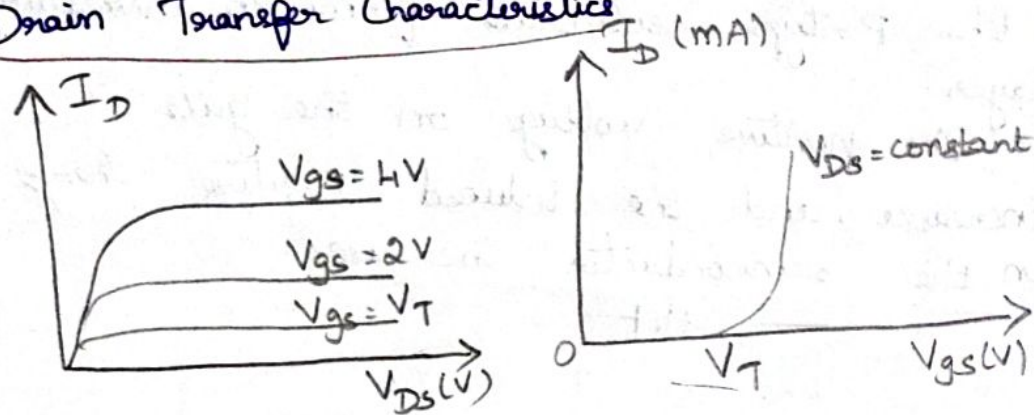 Drain Transfer Characteristics
I_D
Vgs = 4V
Vgs = 2V
Vgs = V_T
V_DS (V)
I_D (mA)
V_DS = constant
O
V_T
Vgs (V)